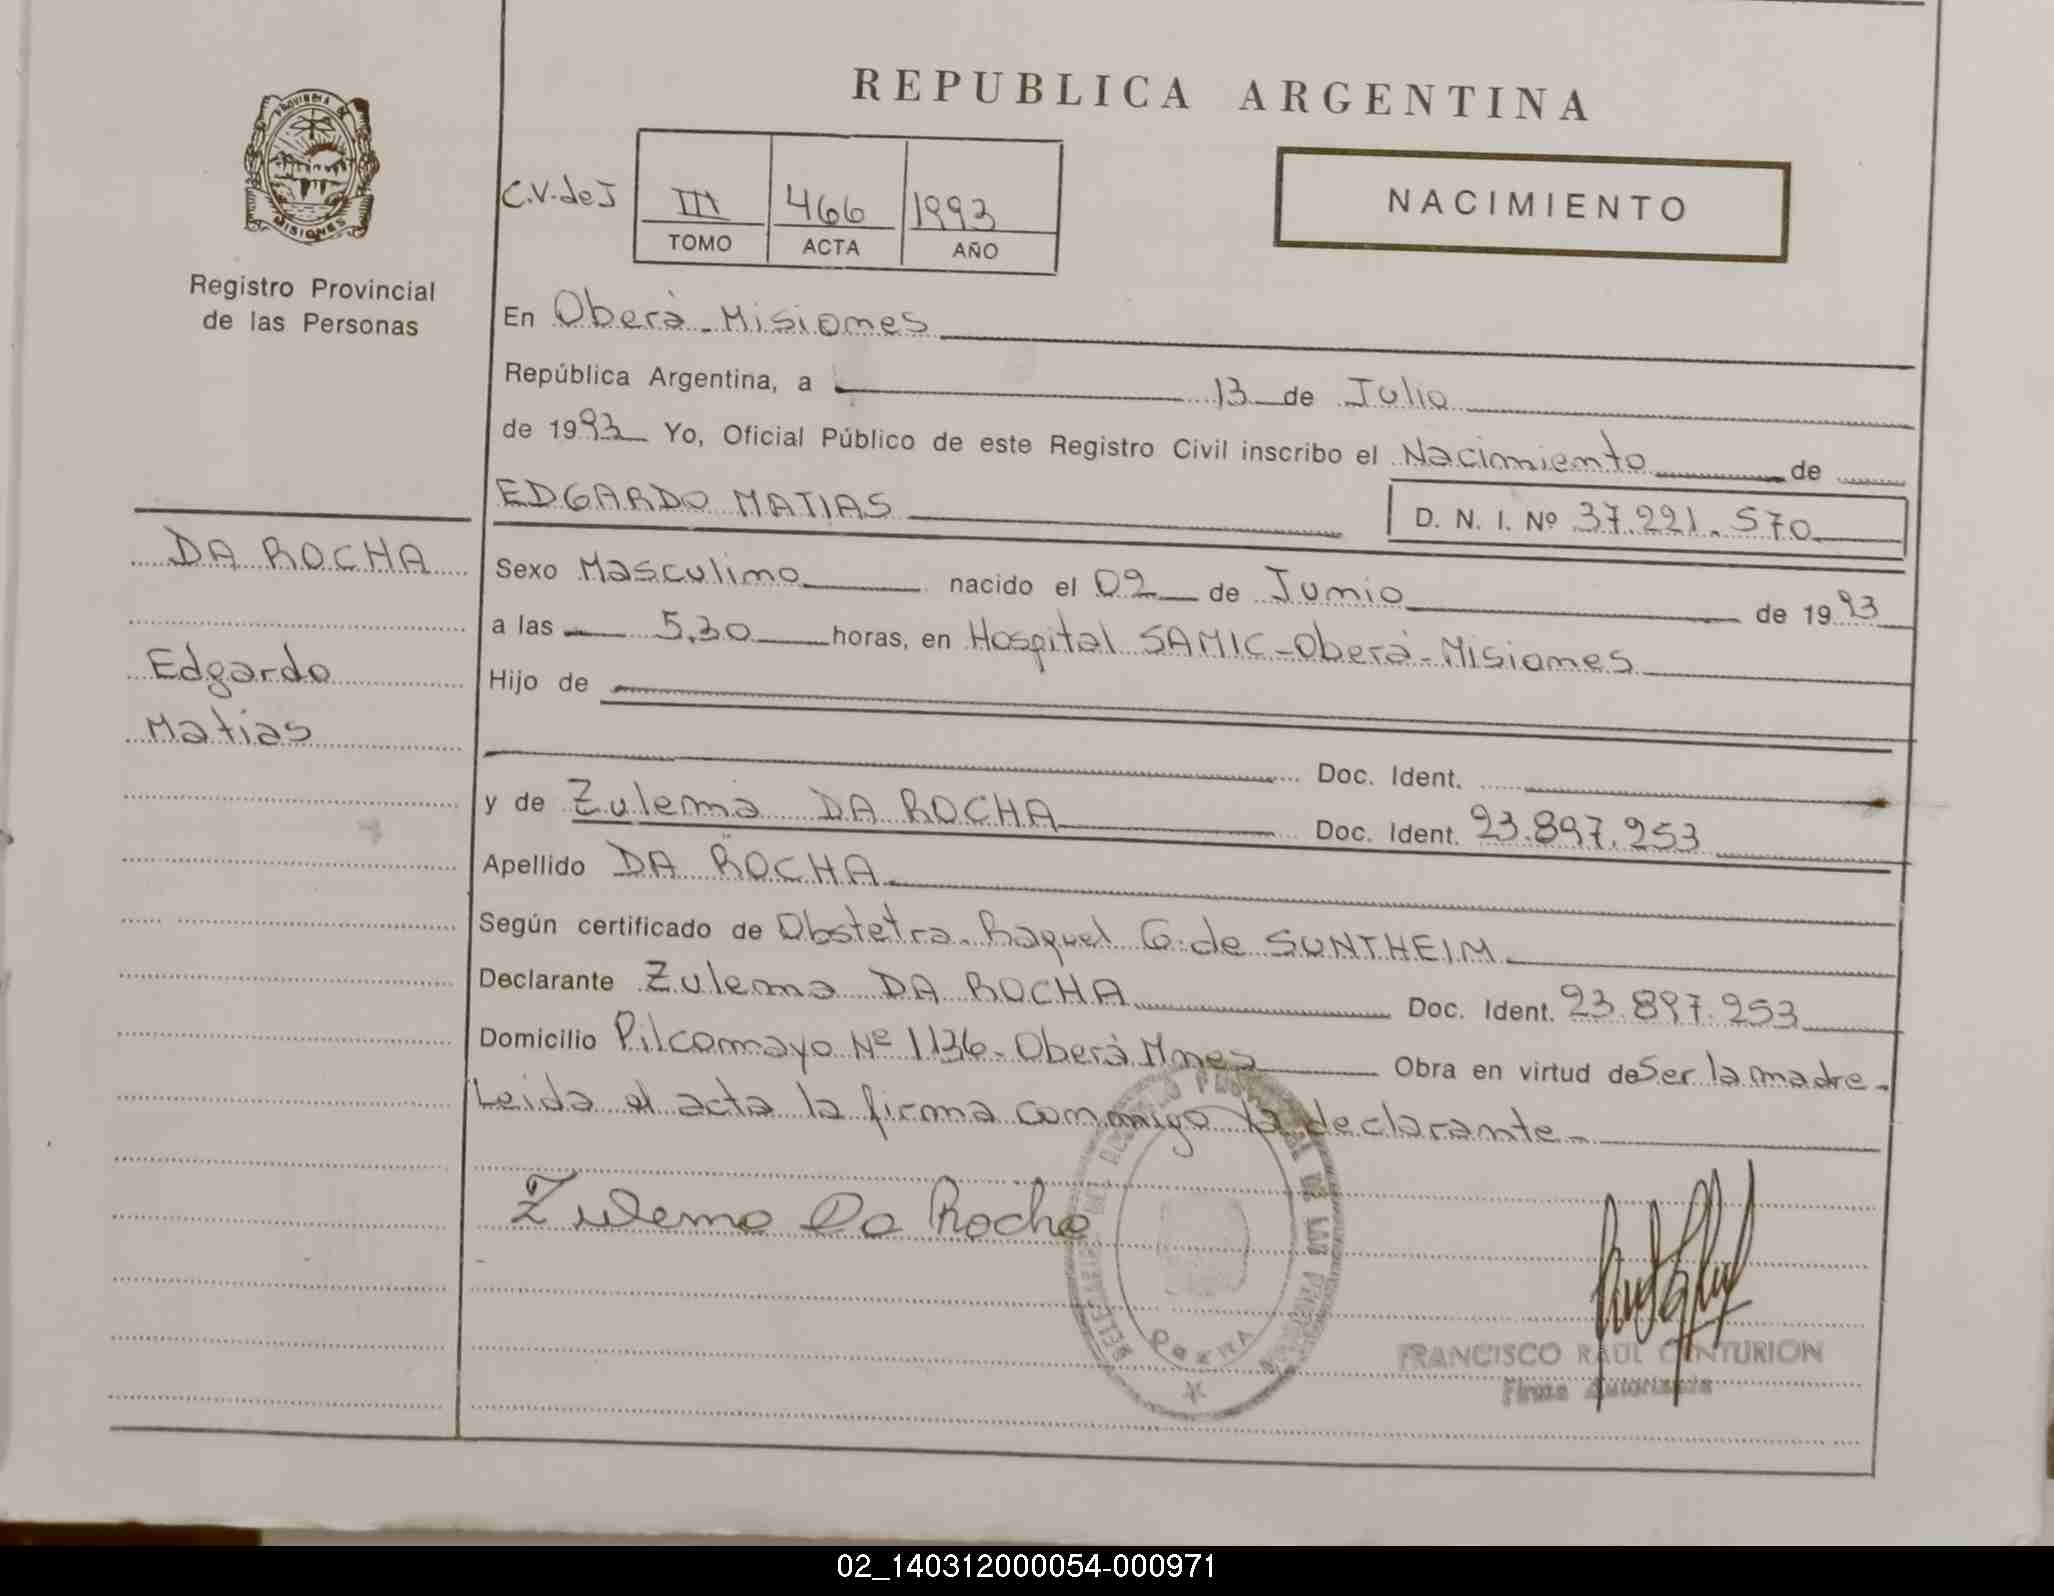 REPUBLICA ARGENTINA
PROVINCIA DE
MISIONES
Registro Provincial
de las Personas
C.V. de J
III 466 1993
TOMO ACTA AÑO
NACIMIENTO
En Oberá - Misiones
República Argentina, a 13 de Julio
de 1993 Yo, Oficial Público de este Registro Civil inscribo el Nacimiento de
EDGARDO MATIAS D. N. I. Nº 37.221.570
DA ROCHA
Edgardo
Matias
Sexo Masculino nacido el 02 de Junio de 1993
a las 5,30 horas, en Hospital SAMIC - Oberá - Misiones
Hijo de
Doc. Ident.
y de Zulema DA ROCHA Doc. Ident. 23.897.253
Apellido DA ROCHA
Según certificado de Obstetra. Raquel G. de SUNTHEIM
Declarante Zulema DA ROCHA Doc. Ident. 23.897.253
Domicilio Pilcomayo Nº 1136 - Oberá Mnes Obra en virtud de Ser la madre.
Leida el acta la firma conmigo la declarante.
Zulema Da Rocha
FRANCISCO RAUL CENTURION
Firma Autorizada
02_140312000054-000971